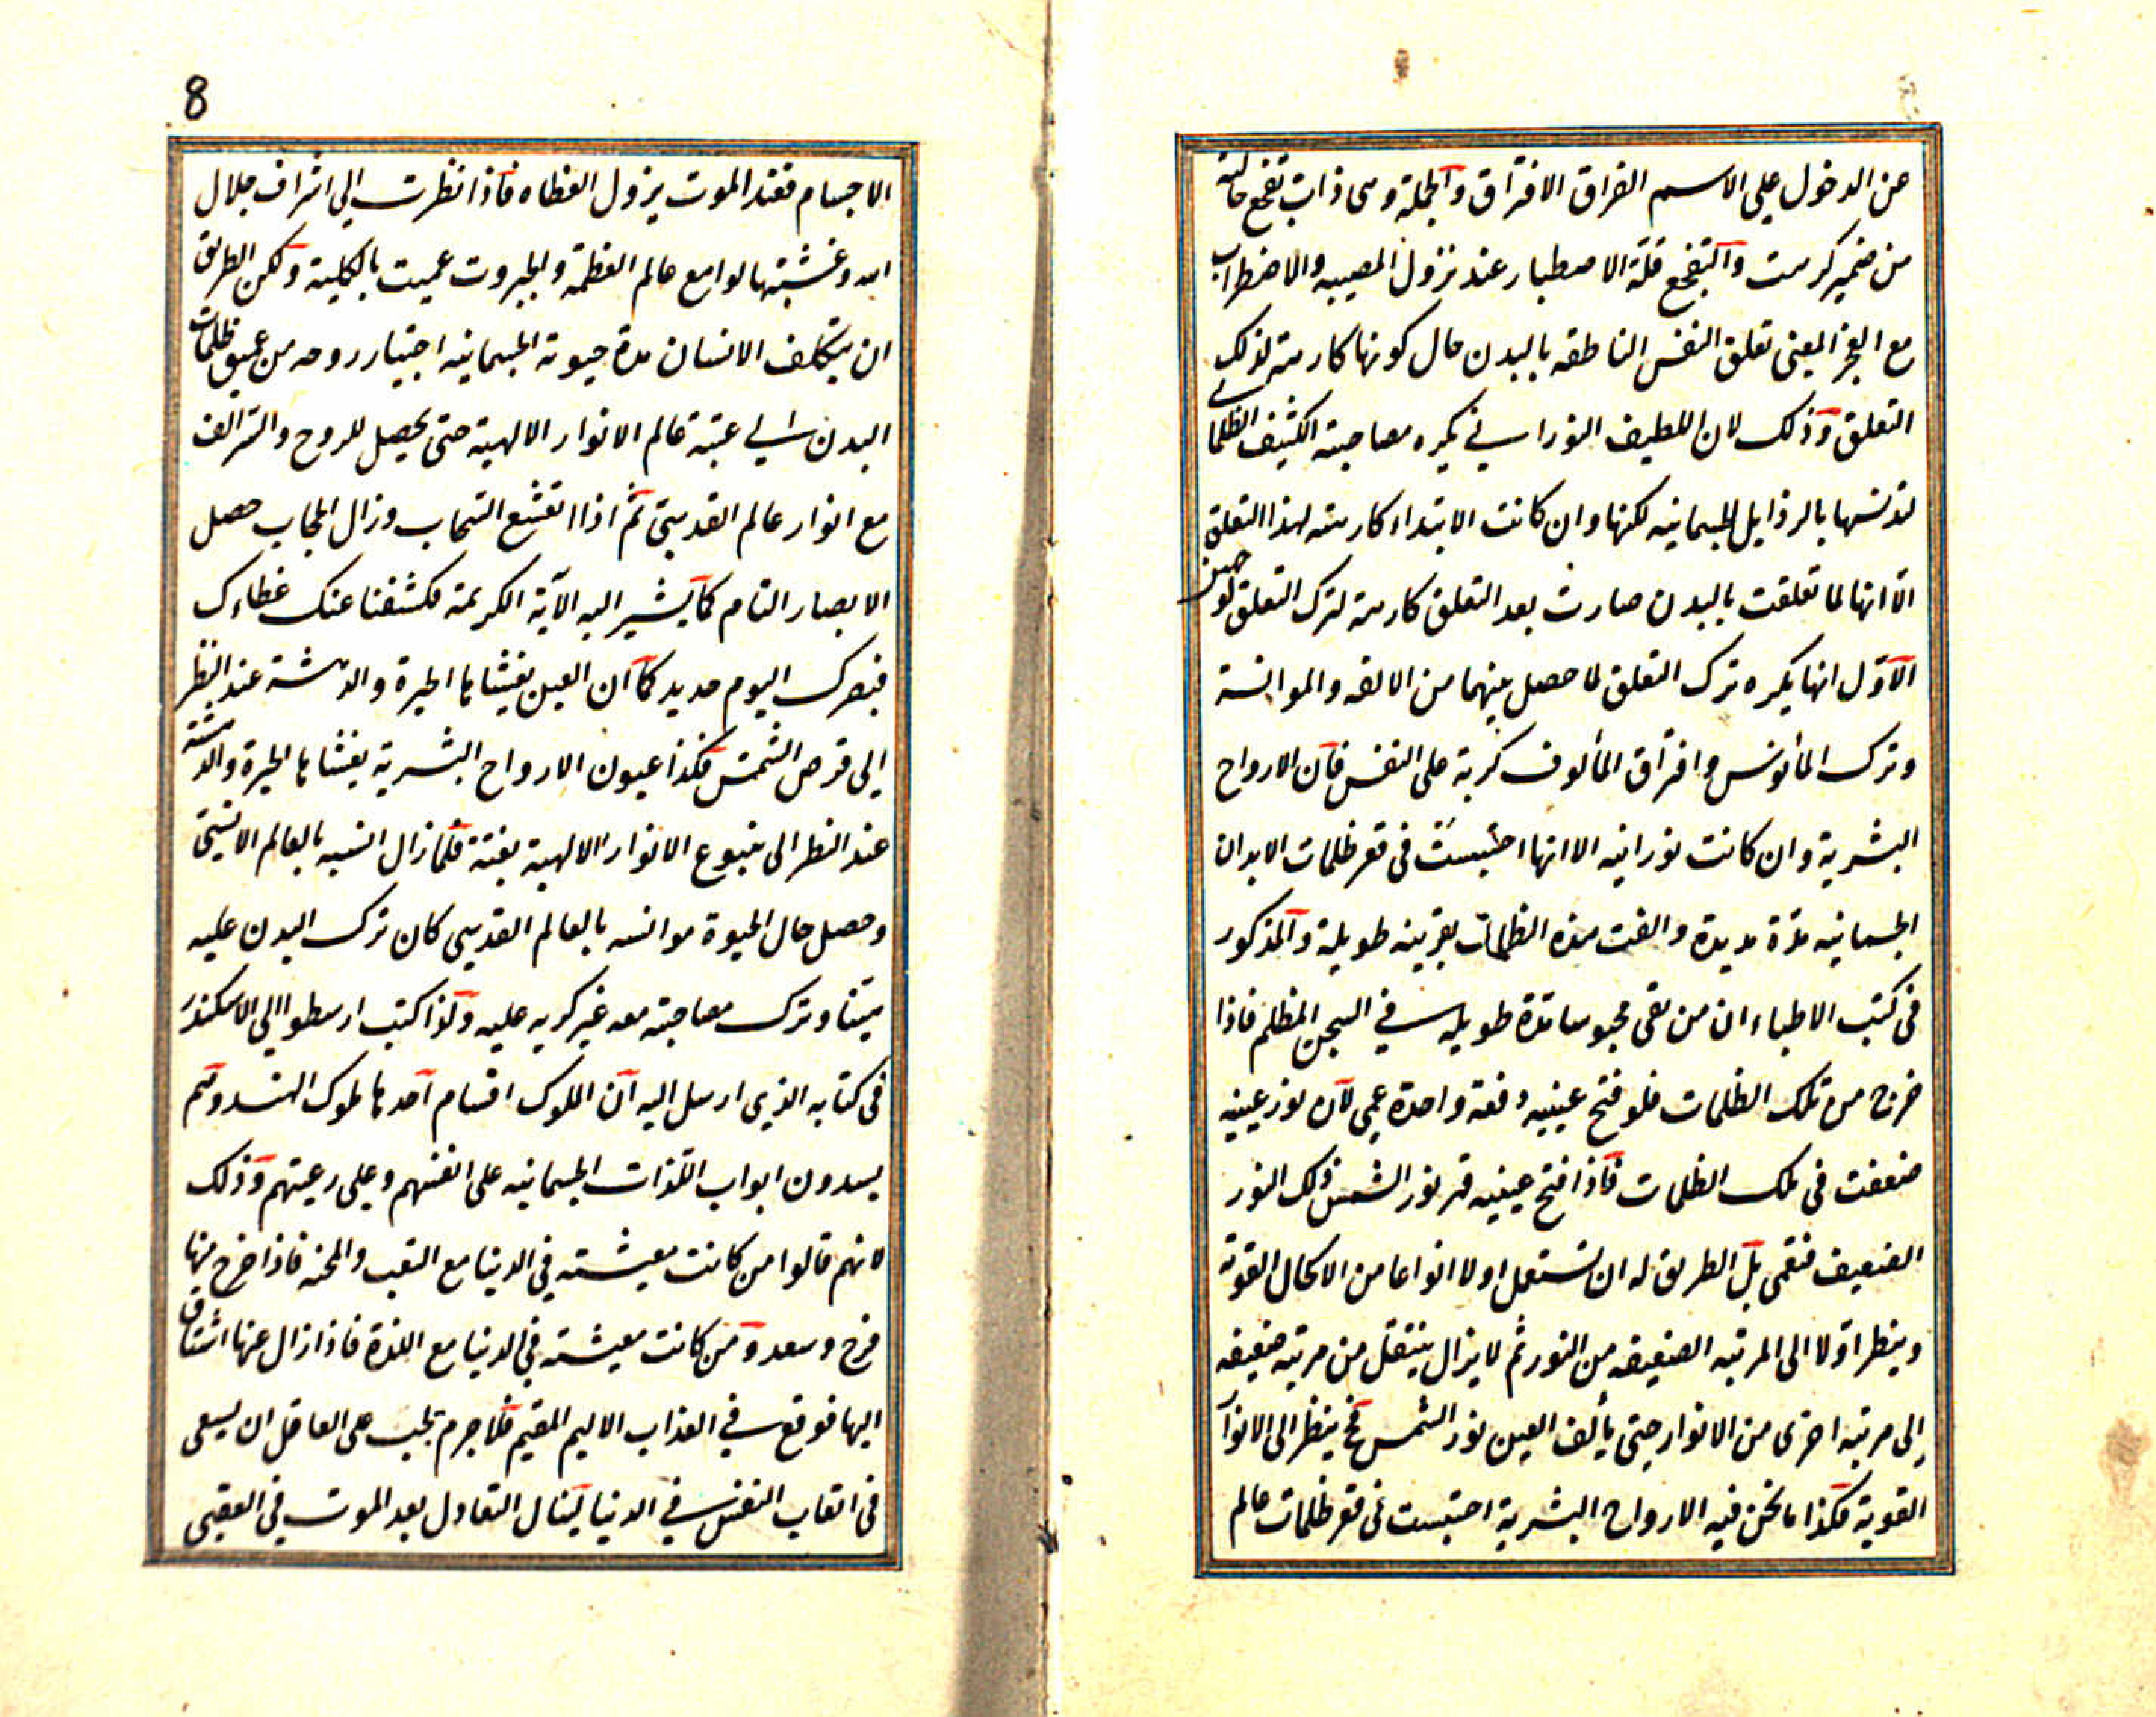 عن الدخول على الاسم الفراق الافتراق والجملة وهى ذات تفجع حالية
من ضمير كرهت والتفجع قلة الاصطبار عند نزول المصيبه والاضطراب
مع العجز المعنى تعلق النفس الناطقه بالبدن حال كونها كارهة لذلك
التعلق وذلك لان اللطيف النورانى يكره مصاحبة الكثيف الظلمانى
لتدنسها بالرذايل الجسمانيه لكنها وان كانت الابتداء كارهته لهذا التعلق
الّا انها لما تعلقت بالبدن صارت بعد التعلق كارهة لترك التعلق
الاوّل انها يكره ترك التعلق لما حصل بينهما من الالفه والموانسة
وترك المأنوس وافتراق المألوف كربة على النفس فان الارواح
البشرية وان كانت نورانيه الا انها احتبست فى قعر ظلمات الابدان
الجسمانيه مدّة مديدة والفت هذه الظلمات بقرينه طويلة والمذكور
فى كتب الاطباء ان من بقى محبوسا مدّة طويله في السجن المظلم فاذا
خرج من تلك الظلمات فلو فتح عينيه دفعة واحدة عمى لان نور عينيه
ضعفت فى تلك الظلمات فاذا فتح عينيه قهر نور الشمس ذلك النور
الضعيف فتعمى بل الطريق له ان يستعمل اولا انواعا من الاكحال القوية
وينظر اوّلا الى المرتبه الضعيفه من النور ثم لا يزال ينتقل من مرتبه ضعيفه
إلى مرتبه اخرى من الانوار حتى يألف العين نور الشمس فح ينظر الى الانوار
القوية فكذا ما نحن فيه الارواح البشرية احتبست فى قعر ظلمات عالم
8
الاجسام فعند الموت يزول الغطاء فاذا نظرت إلى اشراف جلال
الله وغشيتها لوامع عالم العظمة والجبروت عميت بالكلية ولكن الطريق
ان يتكلف الانسان مدة حيوته الجسمانيه روحه من عميق ظلمات
البدن إلى عتبة عالم الانوار الالهية حتى يحصل للروح والسّر الف
مع انوار عالم القدسىّ ثم اذا انقشع السّحاب وزال الحجاب حصل
الابصار التام كما يشير اليه الآية الكريمة فكشفنا عنك غطاءك
فبصرك اليوم حديد كما ان العين يغشاها الحيرة والدهشة عند النظر
إلى قرص الشمس فكذا عيون الارواح البشرية يغشاها الحيرة والدهشة
عند النظر الى ينبوع الانوار الالهية بغتة فلما زال النسبه بالعالم الانسىّ
وحصل حال الحيوة موانسه بالعالم القدسى كان ترك البدن عليه
هيّنا وترك مصاحبته معه غير كريه عليه ولذا كتب ارسطوا إلى الاسكندر
فى كتابه الذي ارسل اليه ان الملوك اقسام احدها ملوك الهند وهم
يسدون ابواب اللّذات الجسمانيه على انفسهم وعلى رعيتهم وذلك
لانهم قالوا من كانت معيشته في الدنيا مع التعب والمحنه فاذا خرج منها
فرح وسعد ومن كانت معيشته في الدنيا مع اللذة فاذا زال عنها اشتاق
اليها فوقع في العذاب الاليم المقيم فلا جرم يجب على العاقل ان يسعى
فى اتعاب النفس في الدنيا لينال التعادل بعد الموت في العقبى